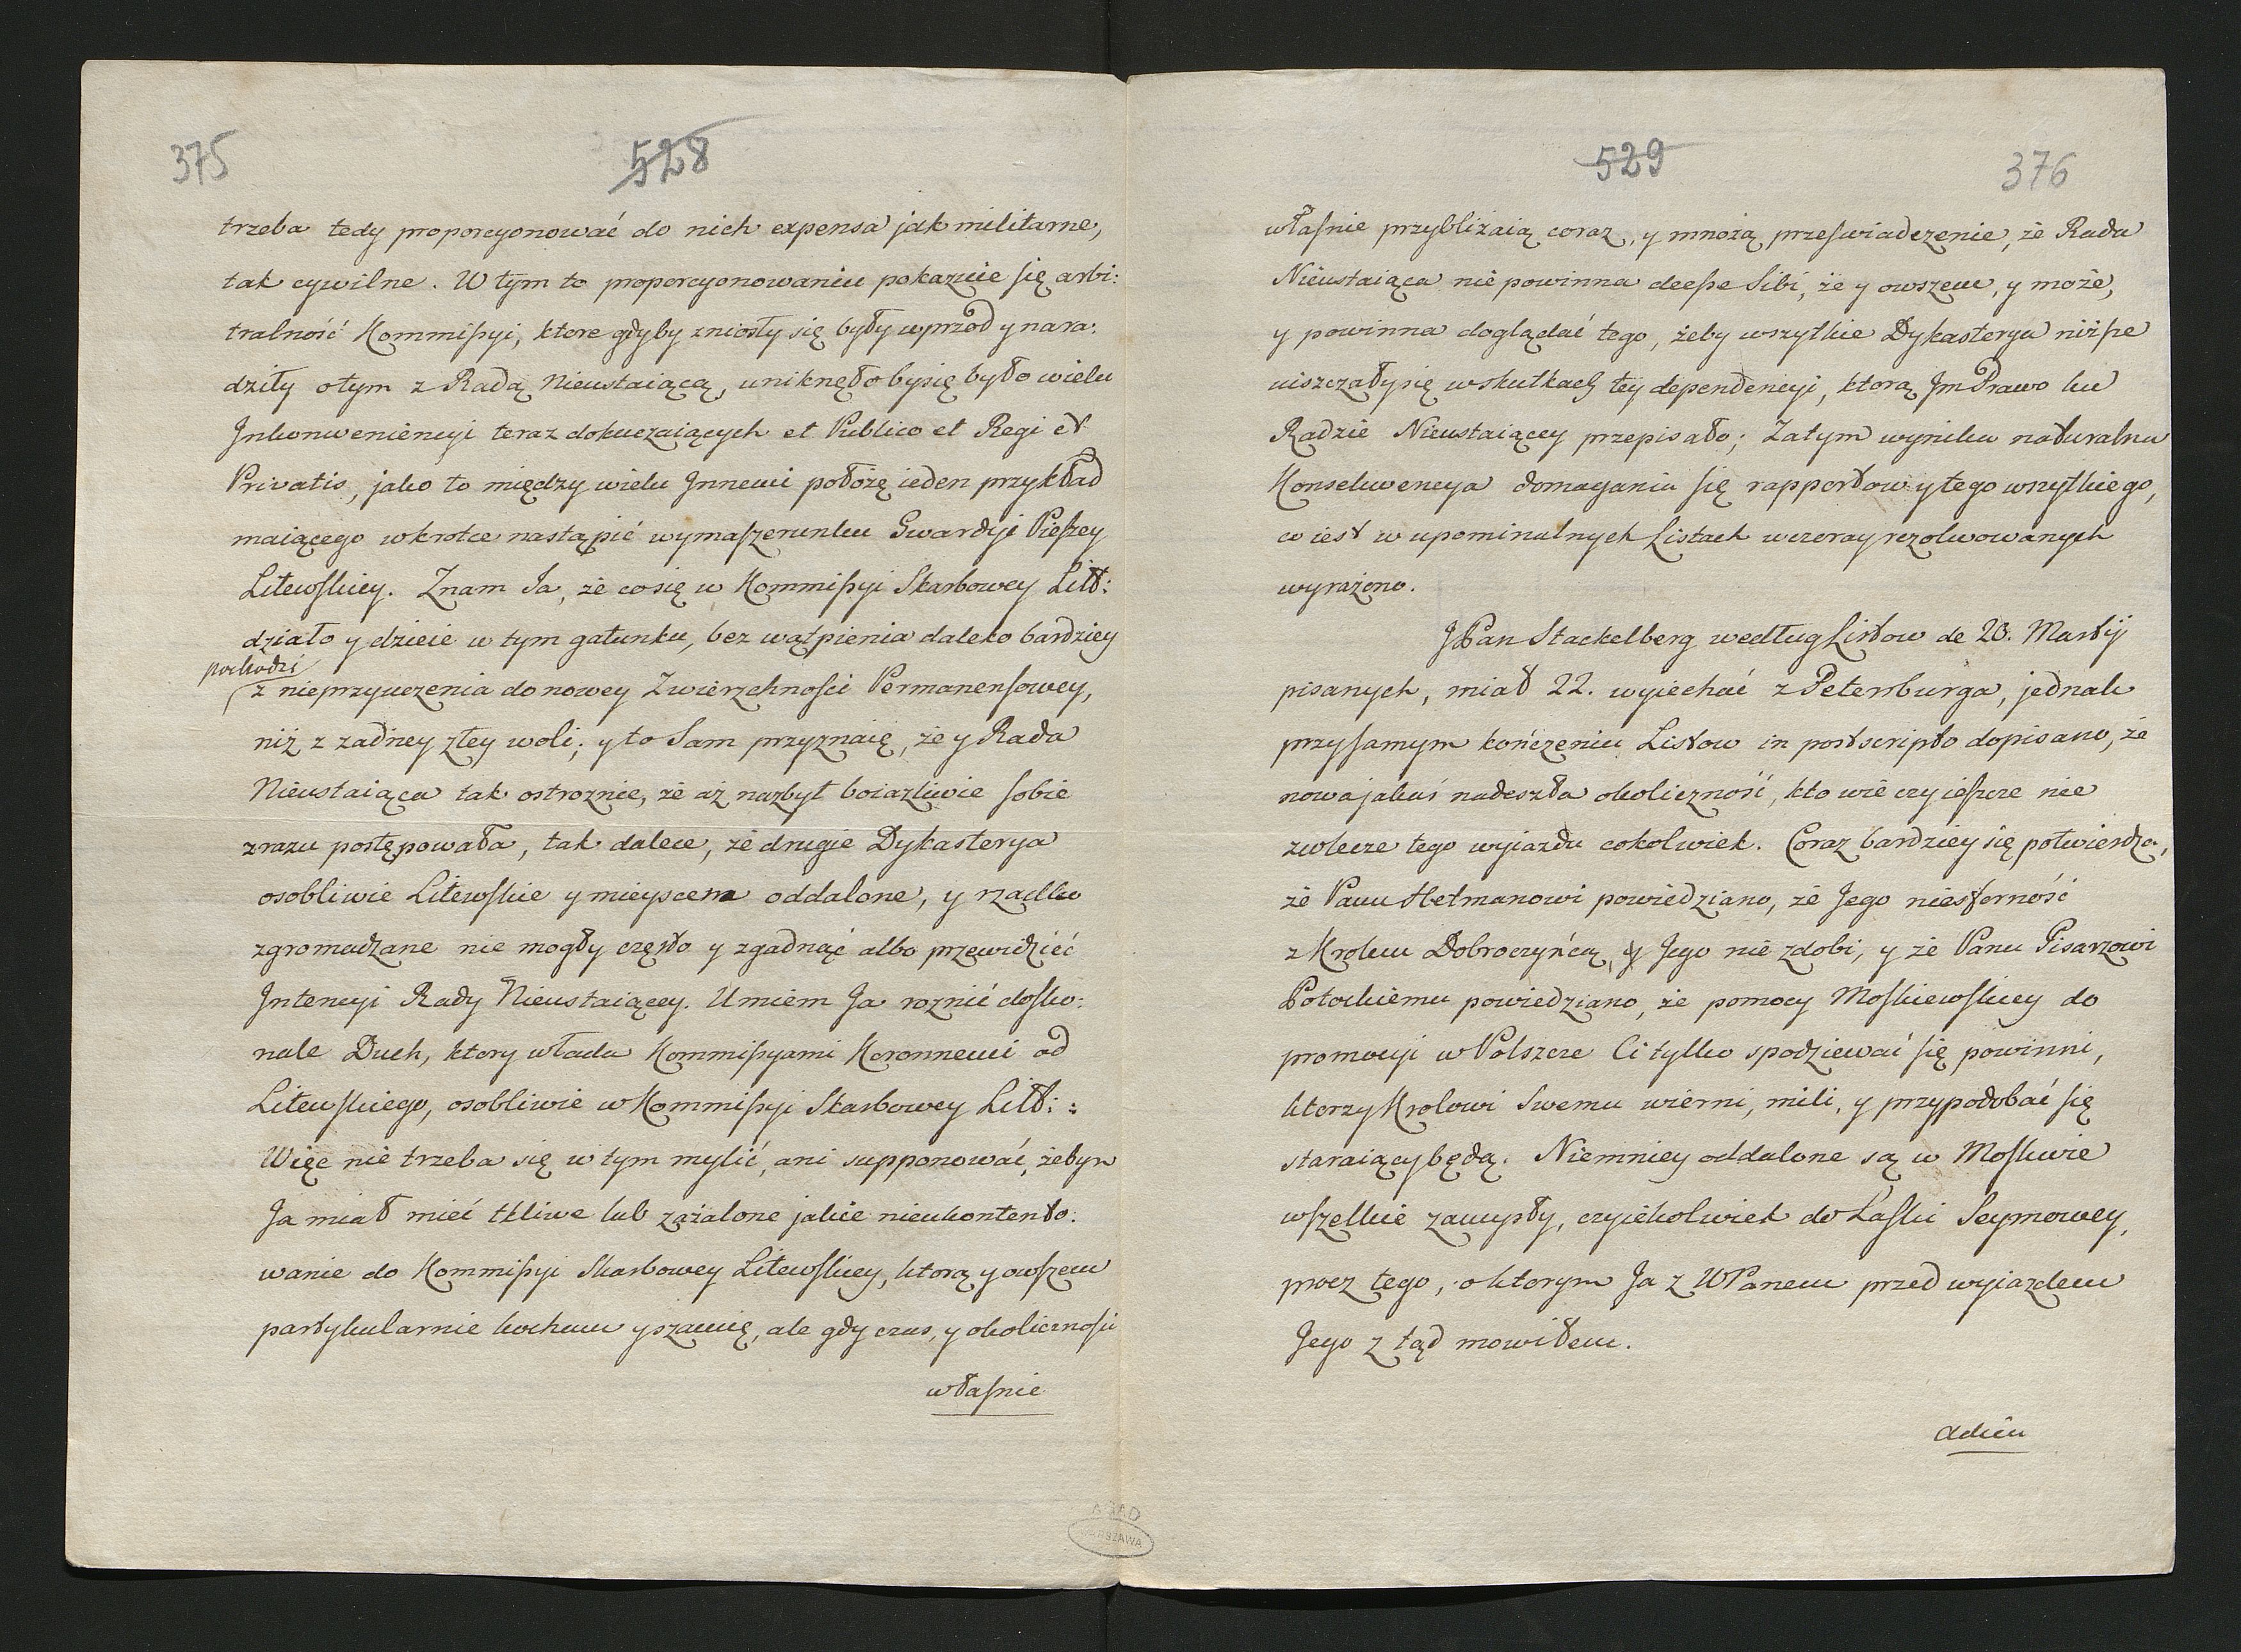 375
528
trzeba tedy proporcyonować do nich expensa jak militarne,
tak cywilne. W tym to proporcyonowaniu pokazuie się arbi:
tralność Kommissyi, ktore gdyby zniosły się były wprzod y nara:
dziły o tym z Radą Nieustaiącą, uniknęło by się było wielu
Inkonweniencyi teraz dokuczaiących et Publico et Regi et
Privatis, jako to między wielu Innemi położę ieden przykład
maiącego wkrotce nastąpić wymaszerunku Gwardyi Pieszey
Litewskiey. Znam Ja, że co się w Kommissyi Skarbowey Litt:
działo y dzieie w tym gatunku, bez wątpienia daleko bardziey
pochodzi
z nieprzyuczenia do nowey Zwierzchności Permanensowey,
niż z żadney złey woli; y to Sam przyznaię, że y Rada
Nieustaiąca tak ostroznie, że aż nazbyt boiazliwie sobie
zrazu postępowała, tak dalece, że drugie Dykasterya
osobliwie Litewskie y mieyscem oddalone, y rzadko
zgromadzane nie mogły często y zgadnąć albo przewidzieć
Intencyi Rady Nieustaiącey. Umiem Ja roznić dosko:
nale Duch, ktory włada Kommissyami Koronnemi od
Litewskiego, osobliwie w Kommissyi Skarbowey Litt:
Więc nie trzeba się w tym mylić, ani supponować, żebym
Ja miał mieć tkliwe lub zażalone jakie nieukontento:
wanie do Kommissyi Skarbowey Litewskiey, ktorą y owszem
partykularnie kocham y szanuię, ale gdy czas, y okoliczności
własnie
529
376
własnie przybliżaią coraz, y mnożą przeswiadczenie, że Rada
Nieustaiąca nie powinna deesse Sibi, że y owszem, y może,
y powinna doglądać tego, żeby wszytkie Dykasterya niższe
uiszczały się w skutkach tey dependencyi, ktorą Im Prawo ku
Radzie Nieustaiącey przepisało; Zatym wynika naturalna
Konsekwencya domagania się rapportow y tego wszytkiego,
co iest w upominalnych Listach wczoray rezolwowanych
wyrażono.
JPan Stackelberg według Listow de 20. Martij
pisanych, miał 22. wyiechać z Petersburga, jednak
przy samym kończeniu Listow in postscripto dopisano, że
nowa jakaś nadeszła okoliczność, kto wie czy ieszcze nie
zwlecze tego wyiazdu cokolwiek. Coraz bardziey się potwierdza,
że Panu Hetmanowi powiedziano, że Jego niesforność
z Krolem Dobroczyńcą, Jego nie zdobi, y że Panu Pisarzowi
Potockiemu powiedziano, że pomocy Moskiewskiey do
promocyi w Polszcze Ci tylko spodziewać się powinni,
ktorzy Krolowi Swemu wierni, mili, y przypodobać się
staraiący będą. Niemniey oddalone są w Moskwie
wszelkie zamysły, czyiekolwiek do Laski Seymowey,
procz tego, o ktorym Ja z WPanem przed wyiazdem
Jego z tąd mowiłem.
Adieu
AGAD
WARSZAWA